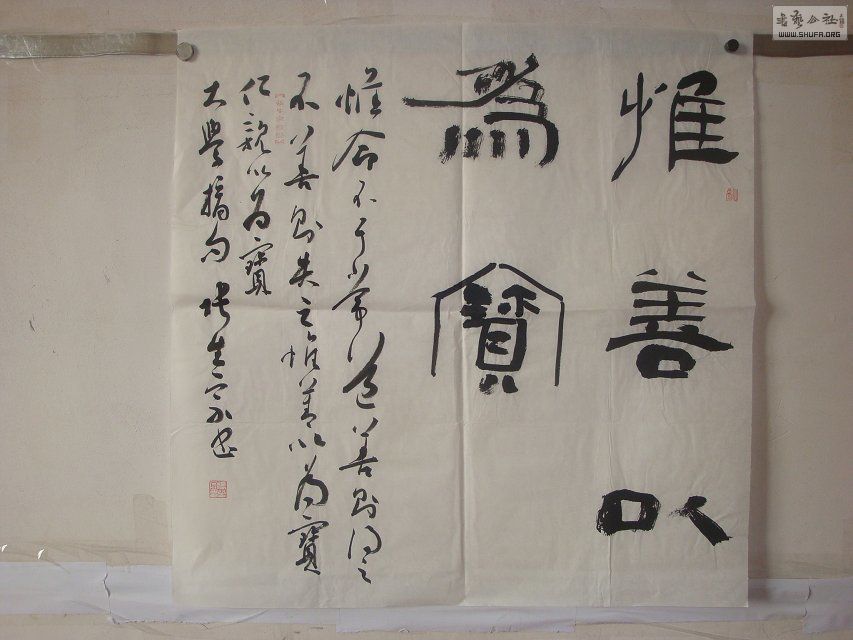 惟善以
為寶
惟命不于常道善則得之
不善則失之惟善以為寶
仁親以為寶
大學摘句 張生
書藝公社
WWW.SHUFA.ORG